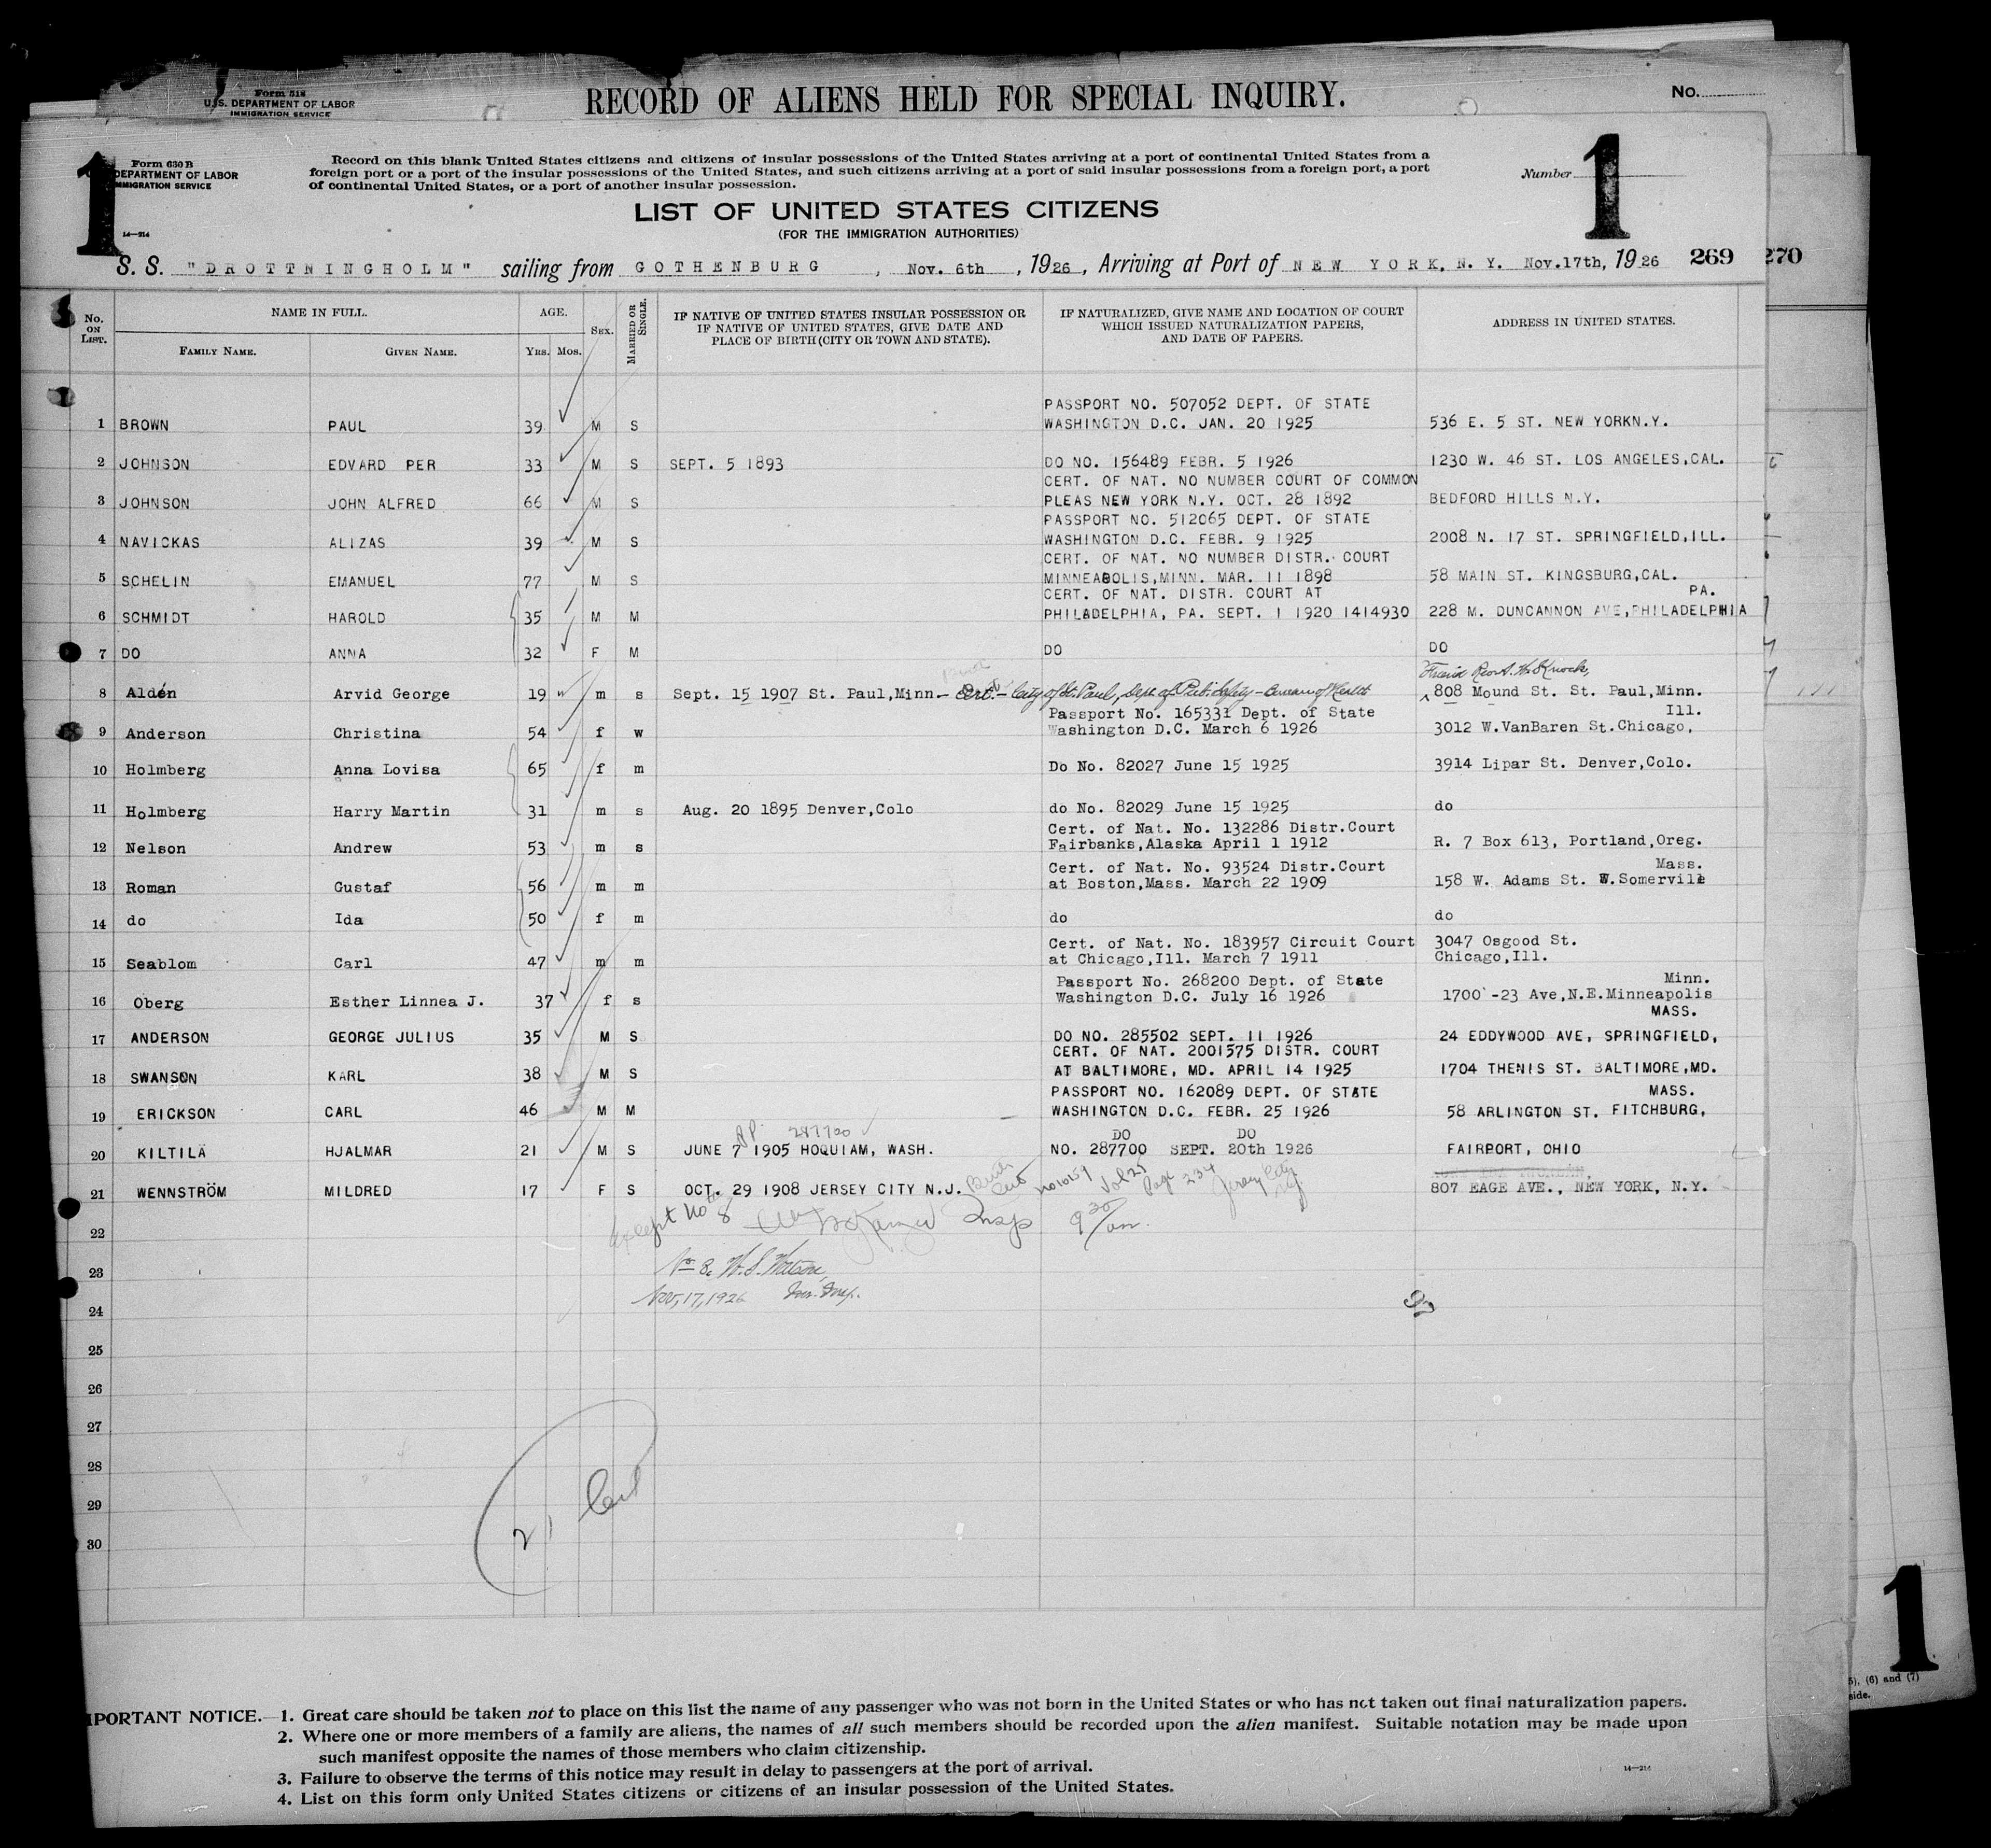 Form 518
U.S. DEPARTMENT OF LABOR
IMMIGRATION SERVICE
RECORD OF ALIENS HELD FOR SPECIAL INQUIRY.
No.
1
Form 630 B
DEPARTMENT OF LABOR
IMMIGRATION SERVICE
14—214
Record on this blank United States citizens and citizens of insular possessions of the United States arriving at a port of continental United States from a
foreign port or a port of the insular possessions of the United States, and such citizens arriving at a port of said insular possessions from a foreign port, a port
of continental United States, or a port of another insular possession.
Number
1
LIST OF UNITED STATES CITIZENS
(FOR THE IMMIGRATION AUTHORITIES)
S. S. "DROTTNINGHOLM" sailing from GOTHENBURG, Nov. 6th, 1926, Arriving at Port of NEW YORK, N. Y. Nov.17th, 1926 269 270
No. ON LIST. NAME IN FULL. AGE. SEX. MARRIED OR SINGLE. IF NATIVE OF UNITED STATES INSULAR POSSESSION OR IF NATIVE OF UNITED STATES, GIVE DATE AND PLACE OF BIRTH (CITY OR TOWN AND STATE). IF NATURALIZED, GIVE NAME AND LOCATION OF COURT WHICH ISSUED NATURALIZATION PAPERS, AND DATE OF PAPERS. ADDRESS IN UNITED STATES.
FAMILY NAME. GIVEN NAME. YRS. MOS.
PASSPORT NO. 507052 DEPT. OF STATE
1 BROWN PAUL 39 M S WASHINGTON D.C. JAN. 20 1925 536 E. 5 ST. NEW YORKN.Y.
2 JOHNSON EDVARD PER 33 M S SEPT. 5 1893 DO NO. 156489 FEBR. 5 1926 1230 W. 46 ST. LOS ANGELES,CAL.
CERT. OF NAT. NO NUMBER COURT OF COMMON
3 JOHNSON JOHN ALFRED 66 M S PLEAS NEW YORK N.Y. OCT. 28 1892 BEDFORD HILLS N.Y.
PASSPORT NO. 512065 DEPT. OF STATE
4 NAVICKAS ALIZAS 39 M S WASHINGTON D.C. FEBR. 9 1925 2008 N. 17 ST. SPRINGFIELD,ILL.
CERT. OF NAT. NO NUMBER DISTR. COURT
5 SCHELIN EMANUEL 77 M S MINNEABOLIS,MINN. MAR. 11 1898 58 MAIN ST. KINGSBURG,CAL.
CERT. OF NAT. DISTR. COURT AT PA.
6 SCHMIDT HAROLD 35 M M PHILADELPHIA, PA. SEPT. 1 1920 1414930 228 M. DUNCANNON AVE,PHILADELPHIA
7 DO ANNA 32 F M DO DO
Friend Rev.
8 Aldén Arvid George 19 m s Sept. 15 1907 St. Paul,Minn. — Birth Cert. — City of St. Paul, Dept. of Pub. Safety — Bureau of Health 808 Mound St. St. Paul,Minn.
Passport No. 165331 Dept. of State Ill.
9 Anderson Christina 54 f w Washington D.C. March 6 1926 3012 W.VanBaren St.Chicago,
10 Holmberg Anna Lovisa 65 f m Do No. 82027 June 15 1925 3914 Lipar St. Denver,Colo.
11 Holmberg Harry Martin 31 m s Aug. 20 1895 Denver,Colo do No. 82029 June 15 1925 do
Cert. of Nat. No. 132286 Distr.Court
12 Nelson Andrew 53 m s Fairbanks,Alaska April 1 1912 R. 7 Box 613, Portland,Oreg.
Cert. of Nat. No. 93524 Distr.Court Mass.
13 Roman Gustaf 56 m m at Boston,Mass. March 22 1909 158 W. Adams St. W.Somervile
14 do Ida 50 f m do do
Cert. of Nat. No. 183957 Circuit Court 3047 Osgood St.
15 Seablom Carl 47 m m at Chicago,Ill. March 7 1911 Chicago,Ill.
Passport No. 268200 Dept. of State Minn.
16 Oberg Esther Linnea J. 37 f s Washington D.C. July 16 1926 1700 -23 Ave,N.E.Minneapolis
MASS.
17 ANDERSON GEORGE JULIUS 35 M S DO NO. 285502 SEPT. 11 1926 24 EDDYWOOD AVE, SPRINGFIELD,
CERT. OF NAT. 2001575 DISTR. COURT
18 SWANSON KARL 38 M S AT BALTIMORE, MD. APRIL 14 1925 1704 THENIS ST. BALTIMORE,MD.
PASSPORT NO. 162089 DEPT. OF STATE MASS.
19 ERICKSON CARL 46 M M WASHINGTON D.C. FEBR. 25 1926 58 ARLINGTON ST. FITCHBURG,
PP. 287700 DO DO
20 KILTILÄ HJALMAR 21 M S JUNE 7 1905 HOQUIAM, WASH. NO. 287700 SEPT. 20th 1926 FAIRPORT, OHIO
21 WENNSTRÖM MILDRED 17 F S OCT. 29 1908 JERSEY CITY N.J. Birth Cert Vol 25 Page 234 Jersey City N.J. 807 EAGE AVE., NEW YORK, N.Y.
Except no 8 Insp 9 30/am.
22
No 8. W. S. Watson,
23
Nov, 17, 1926 Imm. Insp.
24
97
25
26
27
28
29
21 Cert
30
1
IMPORTANT NOTICE.—1. Great care should be taken not to place on this list the name of any passenger who was not born in the United States or who has not taken out final naturalization papers.
2. Where one or more members of a family are aliens, the names of all such members should be recorded upon the alien manifest. Suitable notation may be made upon
such manifest opposite the names of those members who claim citizenship.
3. Failure to observe the terms of this notice may result in delay to passengers at the port of arrival.
4. List on this form only United States citizens or citizens of an insular possession of the United States.
14—214
(6) and (7)
side.